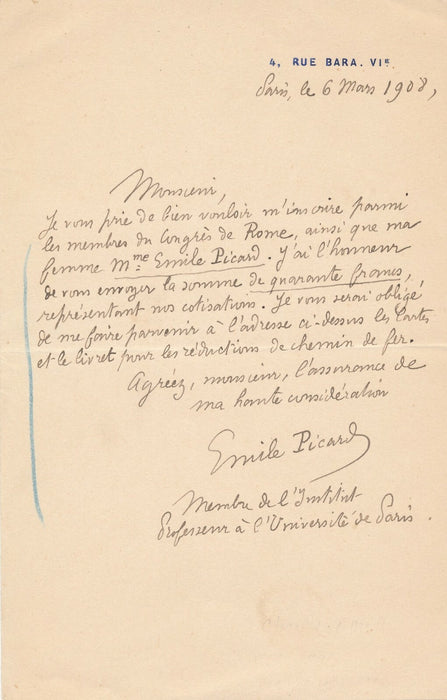 4, RUE BARA. VIE
Paris, le 6 Mars 1908,
Monsieur,
Je vous prie de bien vouloir m'inscrire parmi
les membres du Congrès de Rome, ainsi que ma
femme Mme Emile Picard. J'ai l'honneur
de vous envoyer la somme de quarante francs,
représentant nos cotisations. Je vous serai obligé
de me faire parvenir à l'adresse ci-dessus les Cartes
et le livret pour les réductions de chemin de fer.
Agréez, monsieur, l'assurance de
ma haute considération
Emile Picard
Membre de l'Institut
Professeur à l'Université de Paris.